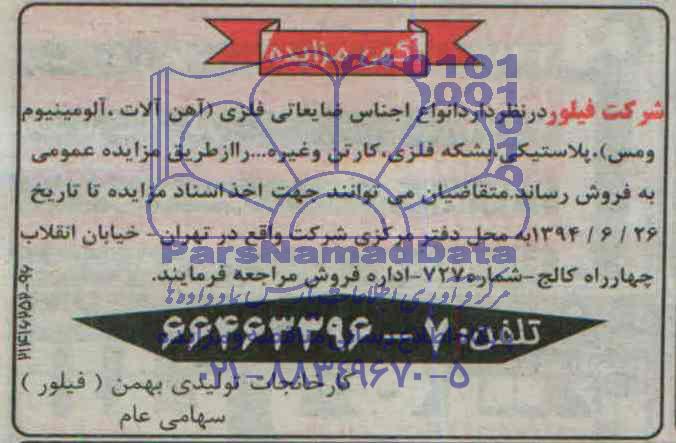 آگهی مزایده
شرکت فیلور درنظردارد انواع اجناس ضایعاتی فلزی (آهن آلات ،آلومینیوم
ومس)،پلاستیکی،بشکه فلزی،کارتن وغیره...راازطریق مزایده عمومی
به فروش رساند.متقاضیان می توانند جهت اخذ اسناد مزایده تا تاریخ
۲۶ / ۶ / ۱۳۹۴به محل دفتر مرکزی شرکت واقع در تهران- خیابان انقلاب
چهارراه کالج-شماره۷۲۷-اداره فروش مراجعه فرمایند.
تلفن: ۷--۶۶۴۶۳۳۹۶
کارخانجات تولیدی بهمن ( فیلور )
سهامی عام
ParsNamadData
۰۲۱-۸۸۳۴۹۶۷۰-۵